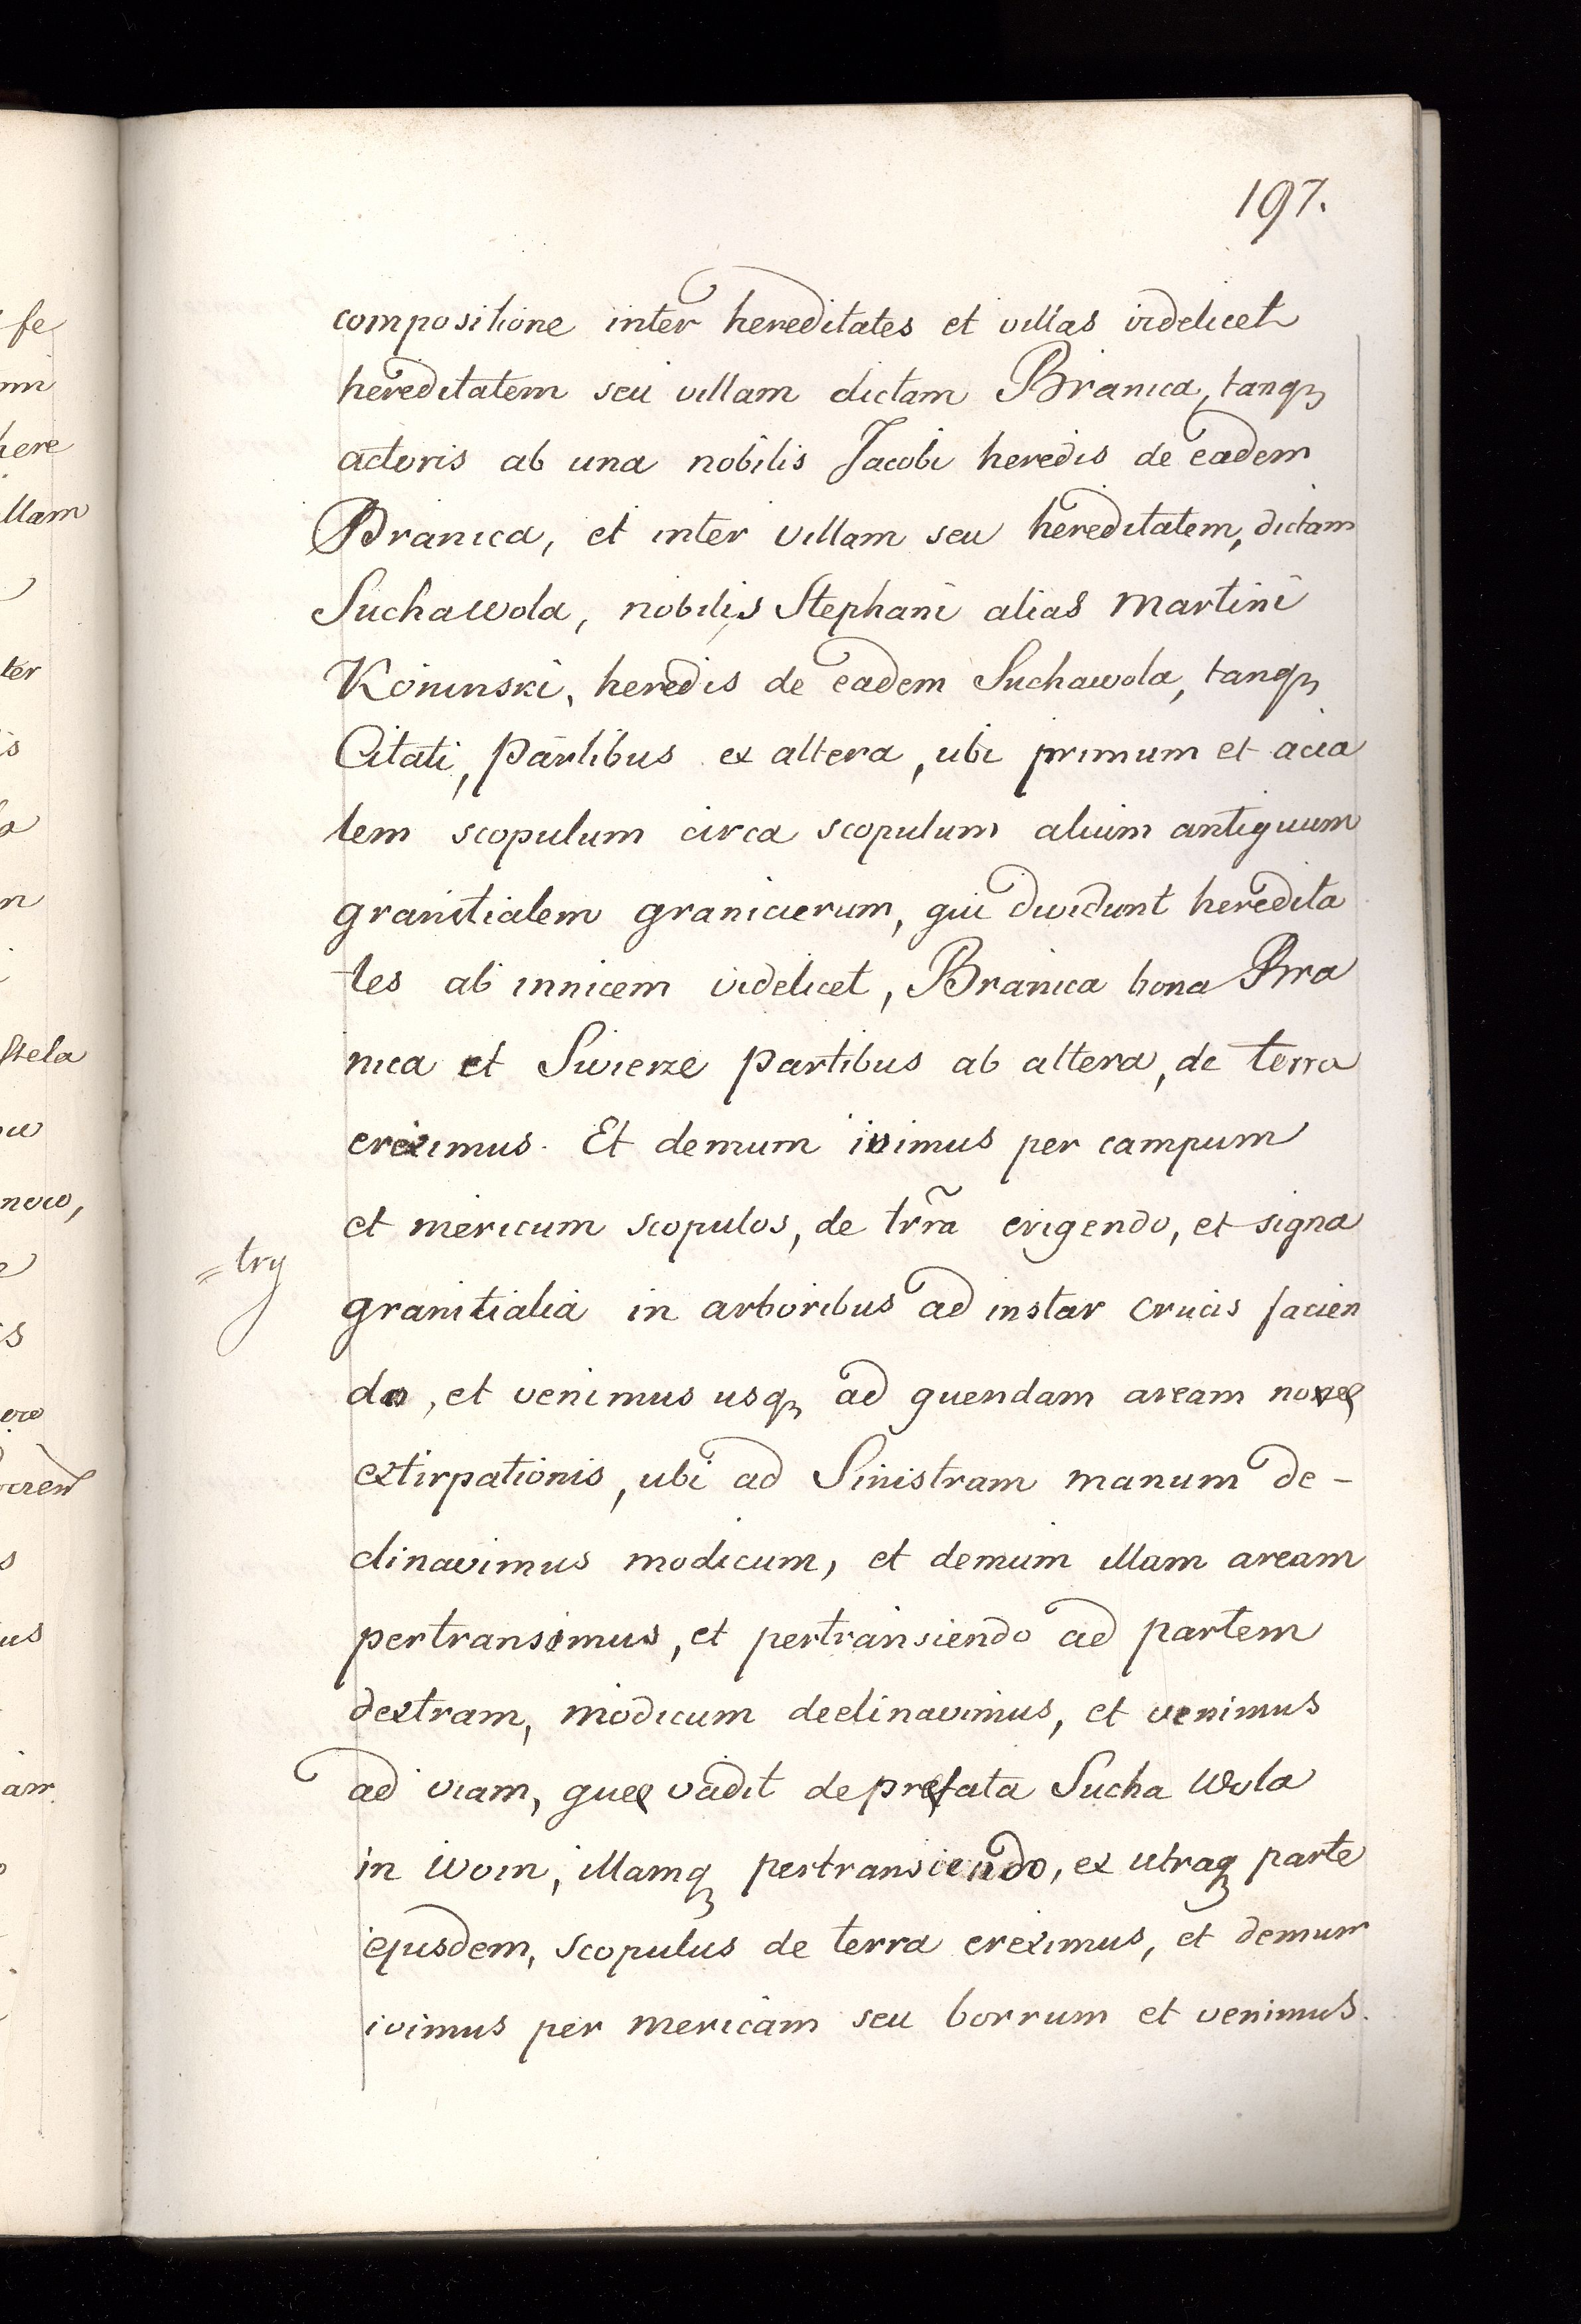 197.
compositione inter hereditates et villas videlicet
hereditatem seu villam dictam Branica, tanqꝫ
actoris ab una nobilis Jacobi heredis de eadem
Branica, et inter villam seu hereditatem, dictam
Suchawola, nobilis Stephani alias Martini
heredis de eadem Suchawola, tanqꝫ
Citati, partibus ex altera, ubi primum et acia
lem scopulum circa scopulum alium antiquum
granitialem granicierum, qui dividunt heredita
tes ab innicem videlicet, Branica bona Bra
nica et Swierze partibus ab altera, de terra
ereximus. Et demum ivimus per campum
et mericum scopulos, de trr̃a erigendo, et signa
=try
granitialia in arboribus ad instar crucis facien
do, et venimus usqꝫ ad quendam aream novæ
extirpationis, ubi ad Sinistram manum de-
clinavimus modicum, et demum illam aream
pertransimus, et pertransiendo ad partem
dextram, modicum declinavimus, et venimus
ad viam, quæ vadit de præfata Sucha Wola
in Woin, illamqꝫ pertransiendo, ex utraqꝫ parte
ejusdem, scopulus de terra ereximus, et demum
ivimus per mericam seu borrum et venimus.
fe
mi
here
llam
ter
is
n
stela
novo,
us